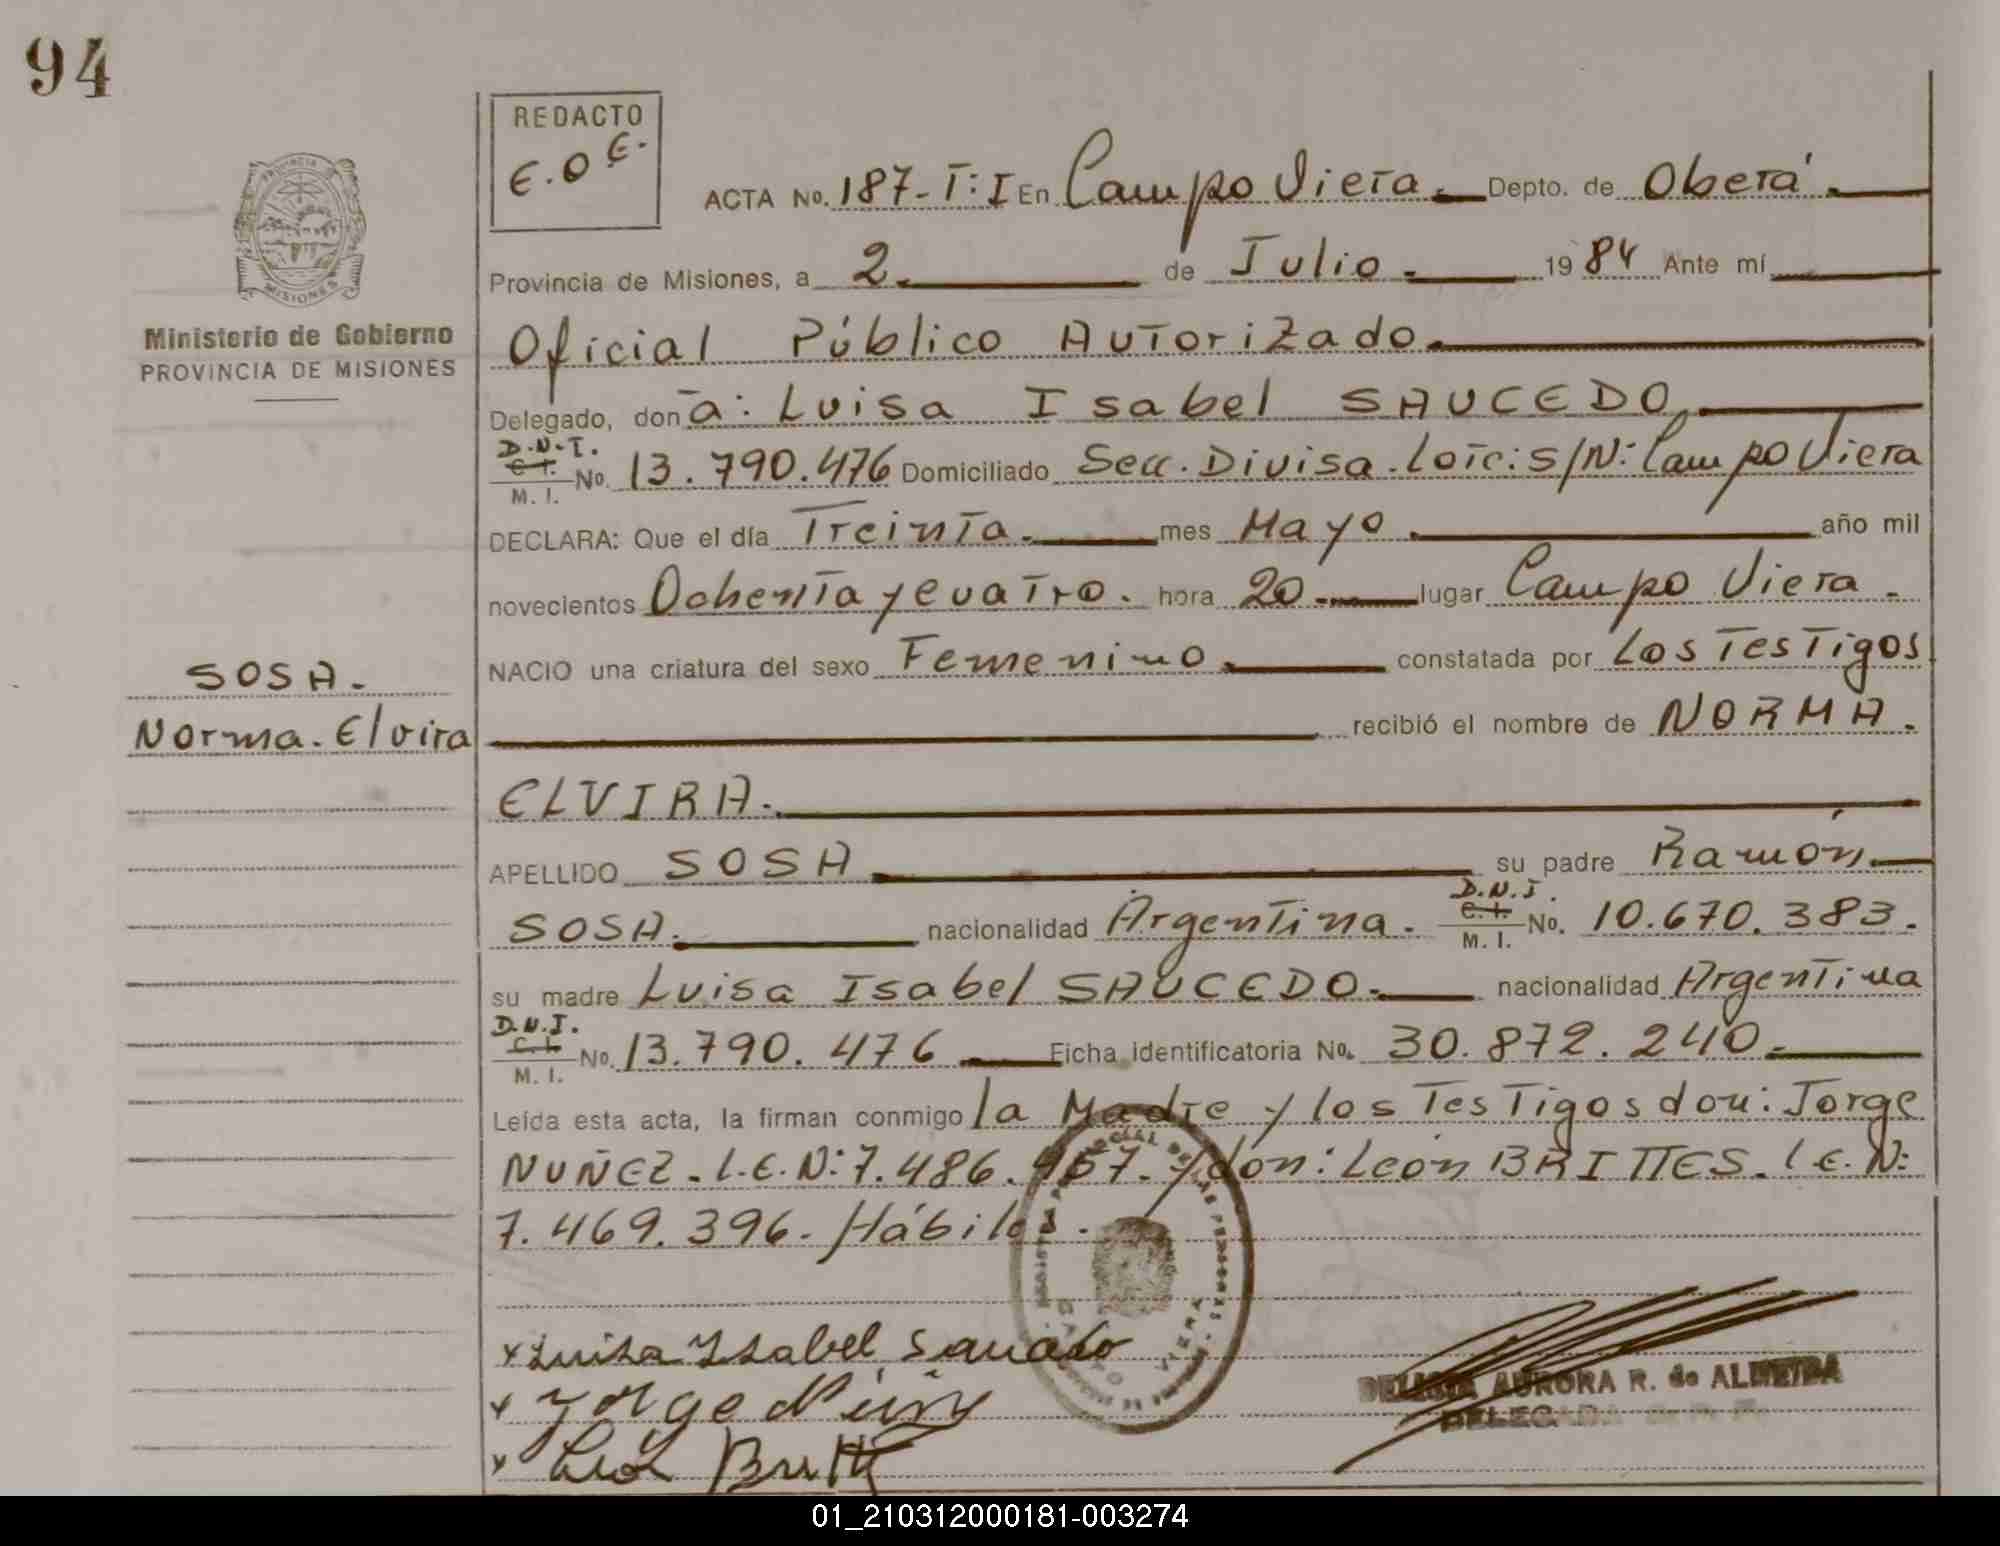 94
REDACTO
E.O.E.
PROVINCIA
MISIONES
Ministerio de Gobierno
PROVINCIA DE MISIONES
ACTA No. 187-T:I En Campo Viera. Depto. de Oberá.
Provincia de Misiones, a 2. de Julio. 1984 Ante mí
Oficial Público Autorizado.
Delegado, don a: Luisa Isabel SAUCEDO
D.N.I.
C. I.
M. I. No. 13.790.476 Domiciliado Secc. Divisa. Lote: s/N: Campo Viera
DECLARA: Que el día Treinta. mes Mayo. año mil
novecientos Ochenta y cuatro. hora 20. lugar Campo Viera.
NACIO una criatura del sexo Femenino. constatada por Los Testigos
SOSA.
Norma. Elvira
recibió el nombre de NORMA.
ELVIRA.
APELLIDO SOSA su padre Ramón.
SOSA. nacionalidad Argentina. D.N.I. C. I. M. I. No. 10.670.383.
su madre Luisa Isabel SAUCEDO. nacionalidad Argentina
D.N.I.
C. I.
M. I. No. 13.790.476 Ficha identificatoria No. 30.872.240.
Leída esta acta, la firman conmigo la Madre y los Testigos don: Jorge
NUÑEZ. L.E.N: 7.486.467. y don: León BRITTES. L.E.N:
7.469.396. Hábiles.
x Luisa Isabel Saucedo
x Jorge Núñez
x León Britt
AURORA R. de ALMEIDA
DELEGADA
01_210312000181-003274